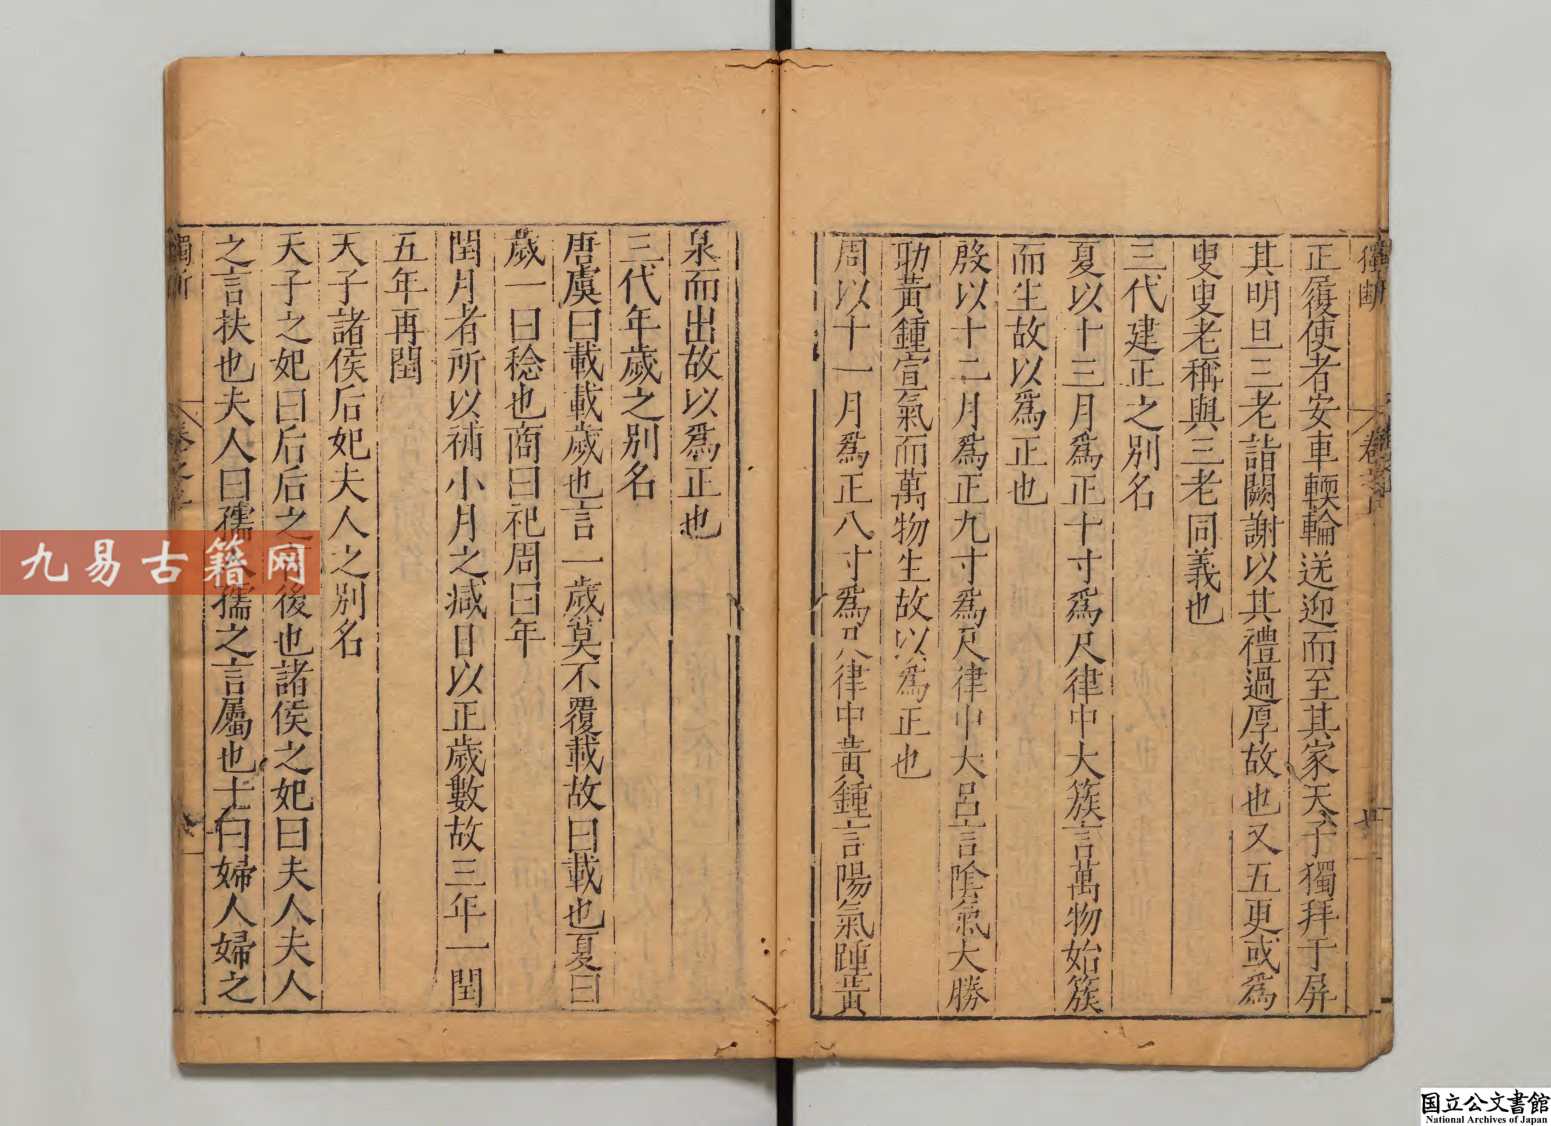 獨斷
正履使者安車輭輪送迎而至其家天子獨拜于屏
其明旦三老詣闕謝以其禮過厚故也又五更或爲
叟叟老稱與三老同義也
三代建正之別名
夏以十三月爲正十寸爲尺律中大簇言萬物始簇
而生故以爲正也
殷以十二月爲正九寸爲尺律中大呂言陰氣大勝
助黃鍾宣氣而萬物生故以爲正也
周以十一月爲正八寸爲尺律中黃鍾言陽氣踵黃
泉而出故以爲正也
三代年歲之別名
唐虞曰載載歲也言一歲莫不覆載故曰載也夏曰
歲一曰稔也商曰祀周曰年
閏月者所以補小月之減日以正歲數故三年一閏
五年再閏
天子諸侯后妃夫人之別名
天子之妃曰后后之後也諸侯之妃曰夫人夫人
之言扶也大夫曰孺孺之言屬也士曰婦人婦之
獨斷
九易古籍网
国立公文書館
National Archives of Japan